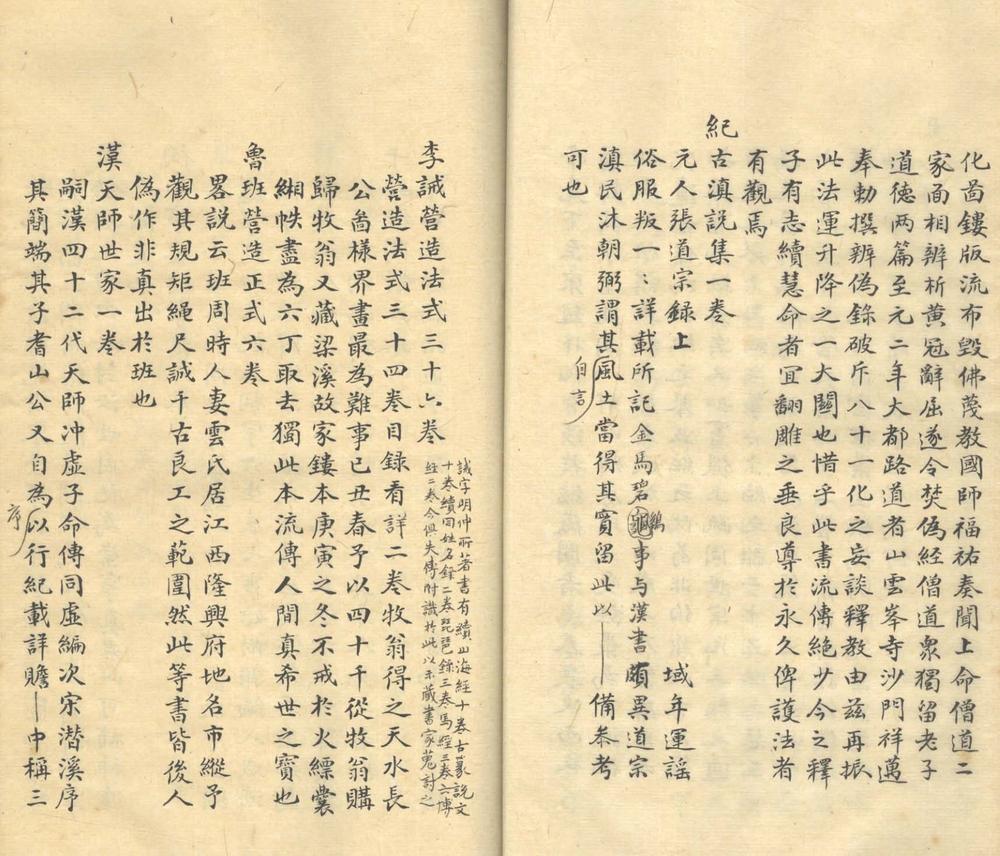 化啚鏤版流布毀佛蔑教國師福祐奏聞上命僧道二
家面相辨析黄冠辭屈遂令焚偽經僧道衆獨留老子
道德兩篇至元二年大都路道者山雲峯寺沙門祥邁
奉勅撰辨偽錄破斥八十一化之妄談釋教由茲再振
此法運升降之一大關也惜乎此書流傳絕少今之釋
子有志續慧命者宜翻雕之垂良導於永久俾護法者
有觀焉
紀古滇説集一巻
元人張道宗錄上
域年運謡
俗服叛一一詳載所記金馬碧事与漢書頗異道宗
鷄
滇民沐朝弼謂其風土當得其實留此以一備叅考
自言
可也
李誡營造法式三十六巻
誡字明仲所著書有續山海經十巻古篆説文
十巻續同姓名錄二巻琵琶錄三巻馬經三巻六博
經三巻今俱失傳附識於此以示藏書家蒐討之
營造法式三十四巻目録看詳二巻牧翁得之天水長
公啚樣界畫最為難事己丑春予以四十千從牧翁購
歸牧翁又藏梁溪故家鏤本庚寅之冬不戒於火縹囊
緗帙盡為六丁取去獨此本流傳人間真希世之寶也
魯班營造正式六巻
畧説云班周時人妻雲氏居江西隆興府地名市縱予
觀其規矩繩尺誠千古良工之範圍然此等書皆後人
偽作非真出於班也
漢天師世家一巻
嗣漢四十二代天師冲虛子命傅同虛編次宋潛溪序
其簡端其子耆山公又自為以行紀載詳贍一中稱三
序